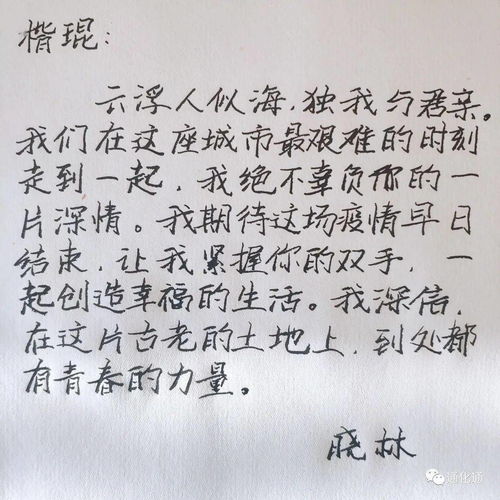 楷琨：
云浮人似海，独我与君亲。
我们在这座城市最艰难的时刻
走到一起，我绝不辜负你的一
片深情。我期待这场疫情早日
结束，让我紧握你的双手，一
起创造幸福的生活。我深信，
在这片古老的土地上，到处都
有青春的力量。
晓林
通化通